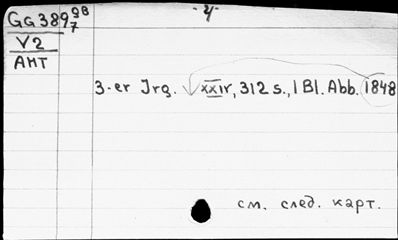 Gg389 98/7
-4-
V2
АНТ
3-er Jrg. XXIV, 312 s., 1 Bl. Abb. 1848
см. след. карт.